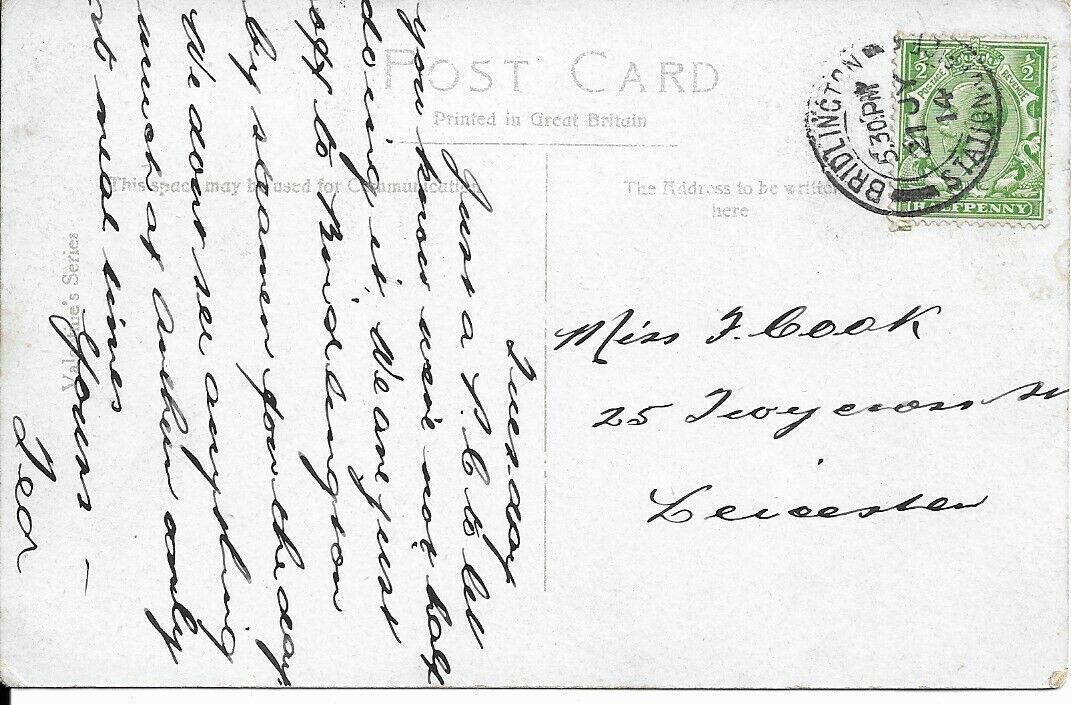 POST CARD
Printed in Great Britain
This space may be used for Communication
The Address to be written
here
Valentine's Series
BRIDLINGTON STATION
5.30PM
21 JY
14
½ ½
POSTAGE REVENUE
HALFPENNY
Tuesday
Just a P.C to let
you know we're not half
doing it. We are just
off to Bridlington
by steamer for the day.
We dont see anything
much of Arthur only
at meal times
Yours —
Geo
Miss F. Cook
25 Twycross St
Leicester